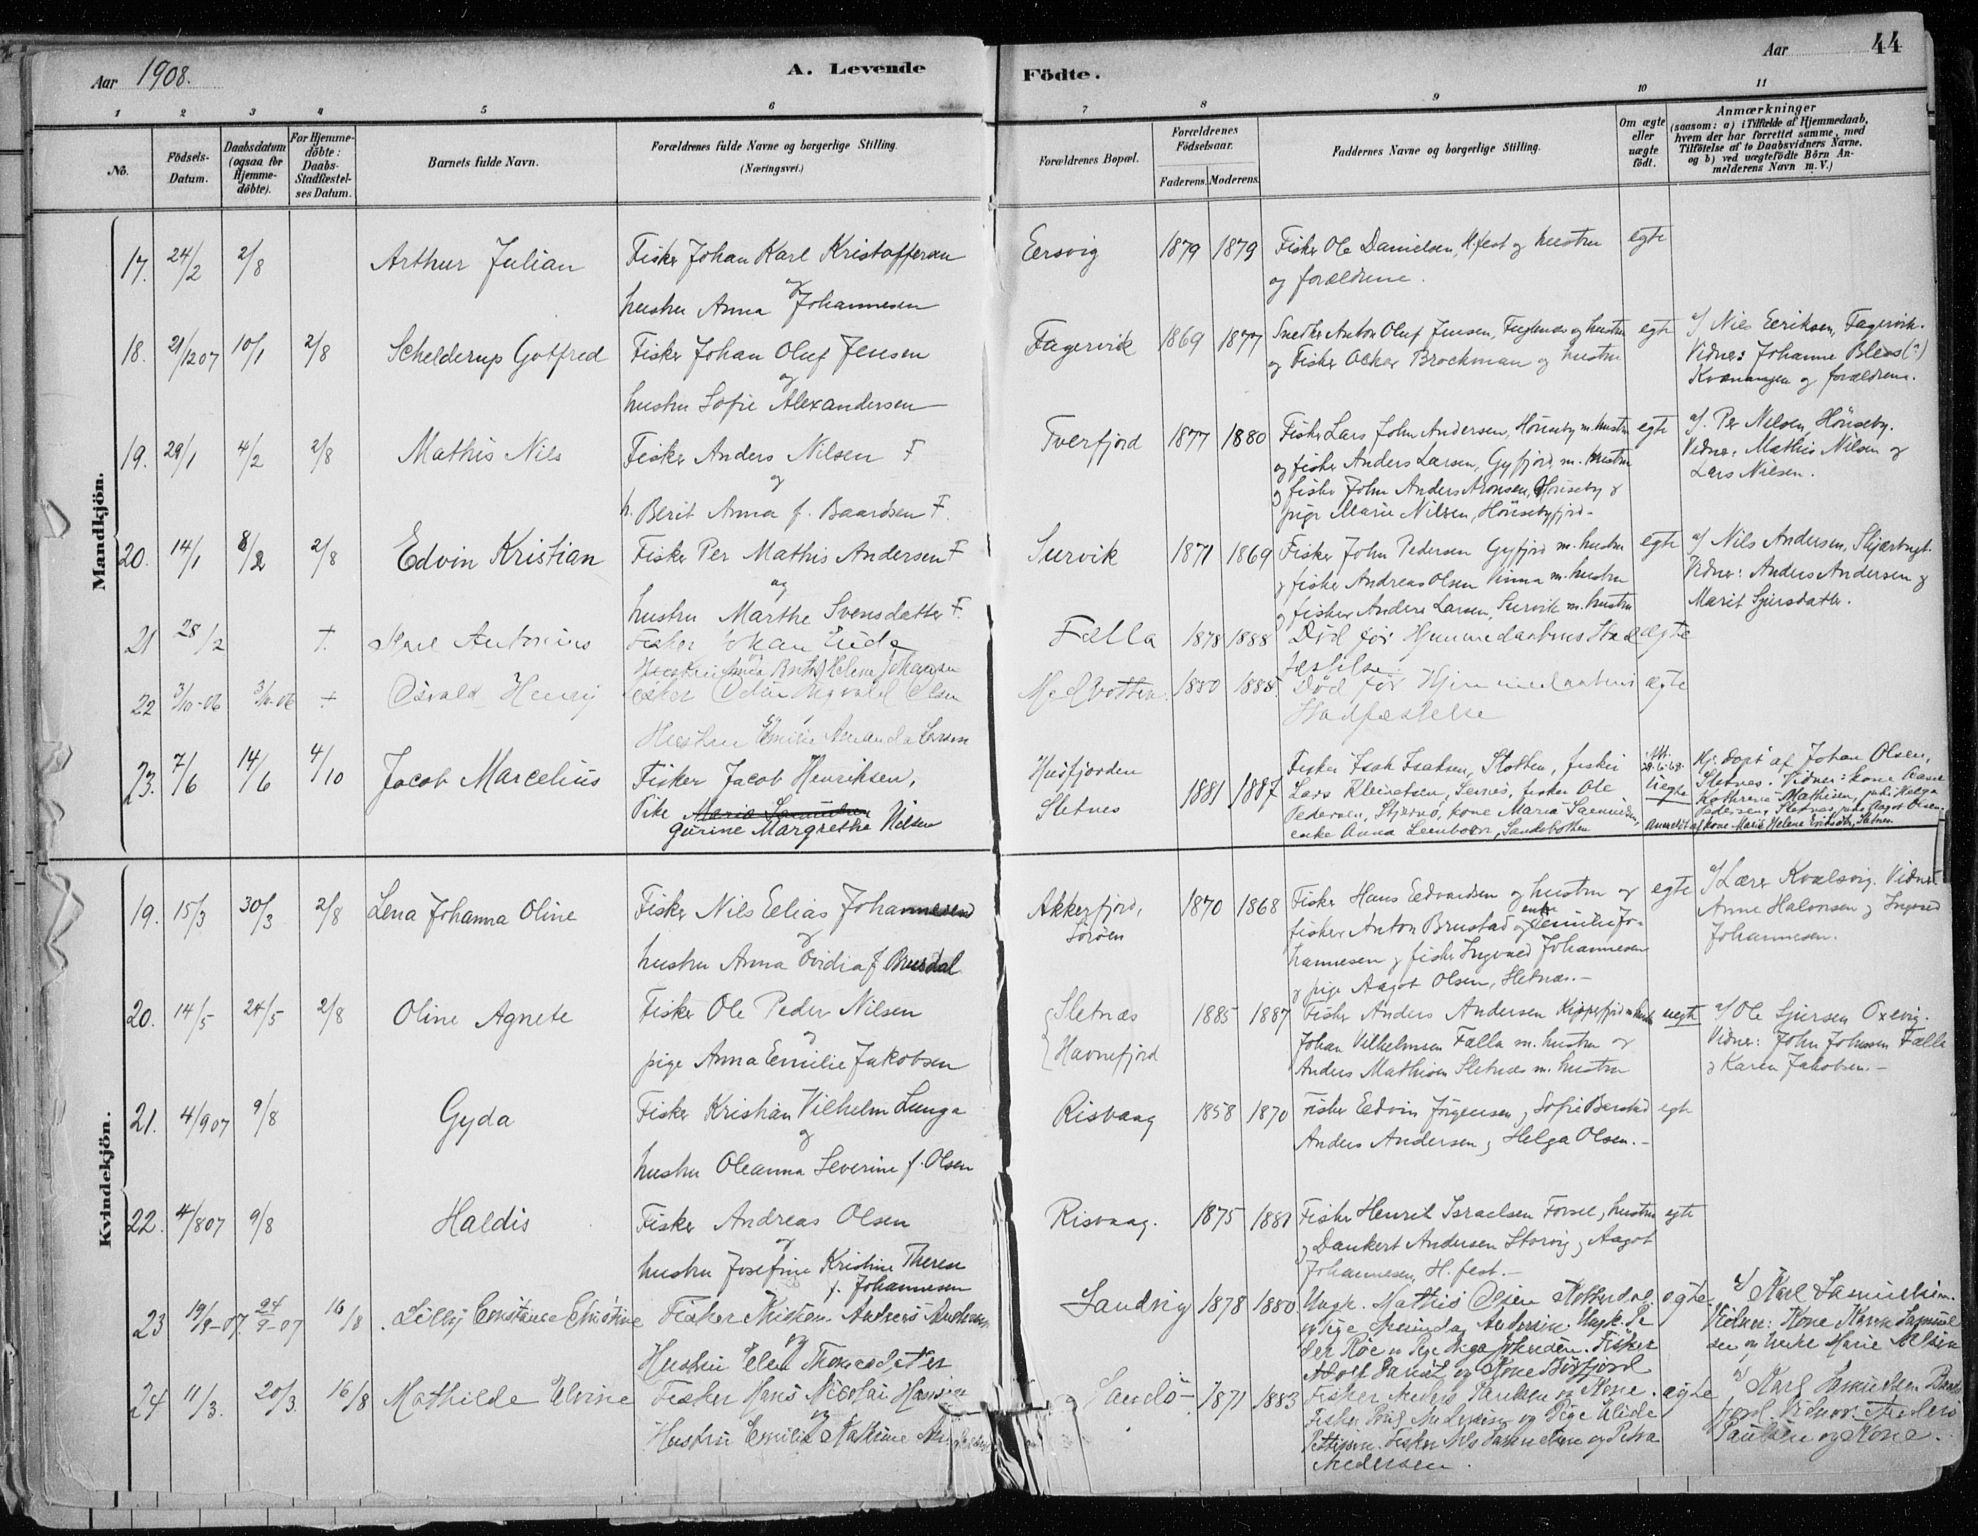 Aar 1908.
A. Levende
Födte.
Aar
44
1 2 3 4 5 6 7 8 9 10 11
No.
Födsels-Datum.
Daabsdatum (ogsaa for Hjemme-döbte).
For Hjemme-döbte: Daabs-Stadfæstel-ses Datum.
Barnets fulde Navn.
Forældrenes fulde Navne og borgerlige Stilling.
(Næringsvei.)
Forældrenes Bopæl.
Forældrenes Födselsaar.
Faderens. Moderens.
Faddernes Navne og borgerlige Stilling.
Om ægte eller uægte födt.
Anmærkninger
(saasom: a) i Tilfælde af Hjemmedaab,
hvem der har forrettet samme, med
Tilföielse af to Daabsvidners Navne,
og b) ved uægtefödte Börn An-
melderens Navn m. V.)
Mandkjön.
17. 24/2 2/8 Arthur Julian Fisker Johan Karl Kristoffersen Eersvig 1879 1879 Fisker Ole Danielsen, H.fest og hustru egte
og
hustru Anna Johannesen og forældrene.
18. 21/12 07 10/1 2/8 Schelderup Gotfred Fisker Johan Oluf Jensen Fagervik 1869 1877 Snedker Anton Oluf Jensen, Fuglenes og hustru egte a/ Nils Eriksen, Fagervik.
og fisker Oskar Brockman og hustru Vidner: Johanne
og
hustru Sofie Alexandersen Kvænangen og forældrene.
19. 29/1 4/2 2/8 Mathis Nils Fisker Anders Nilsen F Tverfjord 1877 1880 Fisker Lars John Andersen, Hönseby m. hustru egte a/. Per Nilsen, Hönseby.
og fisker Anders Larsen, Gyfjord, m. hustru Vidner: Mathis Nilsen og
og
og fisker John Anders Aronsen, Hönseby og Lars Nilsen.
h. Berit Anna f. Baardsen F. pige Marie Nilsen, Hönsebyfjord -
20. 14/1 8/2 2/8 Edvin Kristian Fisker Per Mathis Andersen F Survik 1871 1869 Fisker John Pedersen Gyfjord m. hustru egte a/ Nils Andersen,
og
og fisker Andreas Olsen Vinna m. hustru Vidner: Anders Andersen og
hustru Marthe Svensdatter F. og fisker Anders Larsen, Survik m. hustru Marit Sjursdatter.
21 28/2 +. Karl Antonius Fisker Johan Eide Fælla 1878 1888 Död før Hjemmedaabens Stad ægte
Helene Johansen fæstelse.
22 3/10-06 3/10-06 + Osvald Henrij Fisker Olsen 1880 1885 Död før Hjemmedaabens ægte
Hustru Emilie Amanda Larsen Stadfæstelse
23. 7/6 14/6 4/10 Jacob Marcelius Fisker Jacob Henriksen, Husfjorden 1881 1887 Fisker Isak Isaksen, Slotten, fisker uægte Hj. döpt af Johan Olsen,
Pike Maria Samuelsen Sletnes Lars Sletnes. Vidner: kone
gurine Margrethe Nilsen Pedersen, Stjernö, kone Maria Samuelsen, Kathrene Mathisen,
enke Anna Sandbotten Anmeldt af kone Marie Helene Sletnes.
Kvindekjön.
19. 15/3 30/3 2/8 Lena Johanna Oline Fisker Nils Eelias Johannesen Akkerfjord, Söröen 1870 1868 Fisker Hans Edvardsen og hustru og egte a/ Lærer Kvalsvig. Vidner
fisker Anton Brustad og enke Emilie Jo- Anne Halvorsen og Ingvald
og
hannesen og fisker Ingvald Johannesen Johannesen.
hustru Anna Ovidia f Brusdal og pige Aagot Olsen, Sletnæs. -
20. 14/5 24/5 2/8 Oline Agnete Fisker Ole Peder Nilsen Sletnæs 1885 1887 Fisker Anders Andersen Kippefjord m hustru uegte a/ Ole Sjursen Oxevig.
og
Havnefjord Johan Vilhelmsen Fælla m. hustru og Vidner: John Johnsen Fælla
pige Anna Emilie Jakobsen Anders Mathisen Sletnæs m. hustru og Karen Jakobsen. -
21. 4/9 07 9/8 Gyda Fisker Kristian Vilhelm Lunga Risvaag 1858 1870 Fisker Edvin Jörgensen, Sofie Barstad egte
og
hustru Oleanna Severine f. Olsen Anders Andersen, Helga Olsen. -
22. 4/8 07 9/8 Haldis Fisker Andreas Olsen Risvaag. 1875 1881 Fisker Henrik Israelsen Forsöl, hustru egte
og
og Dankert Andersen Storvig, Aagot
hustru Josefine Kristine Therese f. Johannesen Johannesen, H. fest. -
23 19/9-07. 24/9-07 16/8 Lilly Constance Christine Fisker Nielsen Andreas Sandvig 1878 1880 Ungk. Mathis Olsen ægte. a/ Karl Samuelsen.
og
og Pige Andersen. Ungk. Pe Vidner: Kone Samuel
Hustru Elen Thomasdatter der Röe og Pige Johansen. Fisker sen og Enke Marie Nilsen
Adolf og Kone Börfjord
24 11/3. 20/3. 16/8 Mathilde Elvine Fisker Hans Nicolai Hansen Sandö 1871 1883 Fisker Anders Paulsen og Kone. ægte a/ Karl Samuelsen
og
Fisker Poul Andersen og Pige Vidner Anders
Hustru Emilie Mathine Pettersen. Fisker Nils og Petra Paulsen og Kone.
Andersen.